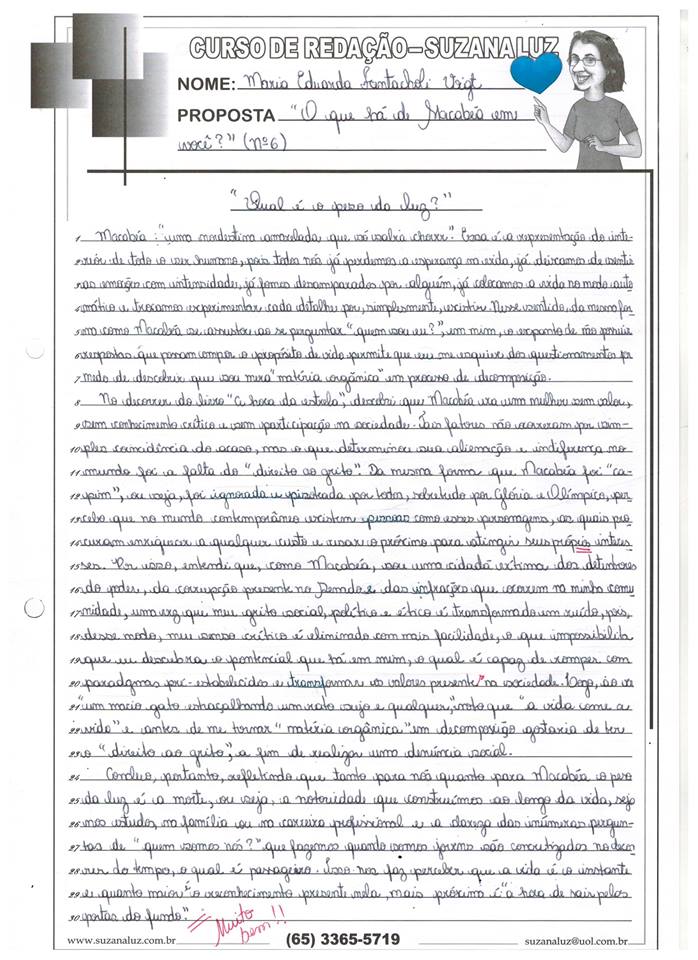 CURSO DE REDAÇÃO – SUZANA LUZ
NOME: Maria Eduarda Fantacholi Voigt
PROPOSTA "O que há de Macabéa em
você?" (Nº6)
"Qual é o peso da luz?"
1. Macabéa: "uma nordestina amarelada que só sabia chover". Essa é a representação do inte-
rior de todo o ser humano, pois todos nós já perdemos a esperança na vida, já deixamos de sentir
as emoções com intensidade, já fomos desamparados por alguém, já colocamos a vida no modo auto
mático e trocamos experimentar cada detalhe por, simplesmente, existir. Nesse sentido, da mesma for
ma como Macabéa se assustou ao se perguntar "quem sou eu?", em mim, o espanto de não possuir
respostas que possam compor o propósito de vida permite que eu me esquive dos questionamentos por
7. medo de descobrir que sou mera "matéria orgânica" em processo de decomposição.
8. No decorrer do livro "A hora da estrela", descobri que Macabéa era uma mulher sem valor,
9. sem conhecimento crítico e sem participação na sociedade. Tais fatores não ocorreram por sim-
10. ples coincidência do acaso, mas o que determinou sua alienação e indiferença no
11. mundo foi a falta do "direito ao grito". Da mesma forma que Macabéa foi "ca-
12. pim", ou seja, foi ignorada e pisoteada por todos, sobretudo por Glória e Olímpico, per-
13. cebo que no mundo contemporâneo existem pessoas como esses personagens, as quais pro
14. curam enriquecer a qualquer custo e usar o próximo para atingir seus próprios interes
15. ses. Por isso, entendi que, como Macabéa, sou uma cidadã vítima dos detentores
16. do poder, da corrupção presente no Senado e das infrações que ocorrem na minha comu
17. nidade, uma vez que meu grito social, político e ético é transformado em ruído, pois,
18. desse modo, meu senso crítico é eliminado com mais facilidade, o que impossibilita
19. que eu descubra o pontencial que há em mim, o qual é capaz de romper com
20. paradigmas pré-estabelecidos e transformar os valores presente na sociedade. Logo, ao ver
21. "um macio gato estraçalhando um rato sujo e qualquer," noto que "a vida come a
22. vida" e antes de me tornar "matéria orgânica" em decomposição gostaria de ter
23. o "direito ao grito", a fim de realizar uma denúncia social.
24. Concluo, portanto, refletindo que tanto para nós quanto para Macabéa o peso
25. da luz é a morte, ou seja, a notoriedade que construímos ao longo da vida, seja
26. nos estudos, na família ou na carreira profissional e a clareza das inúmeras pergun-
27. tas de "quem somos nós?" que fazemos quando somos jovens são concretizadas no decor
28. rer do tempo, o qual é passageiro. Isso nos faz perceber que a vida é o instante
29. e quanto maior é o reconhecimento presente nela, mais próximo é "a hora de sair pelas
30. portas do fundo".
Muito
bem!!
www.suzanaluz.com.br (65) 3365-5719 suzanaluz@uol.com.br